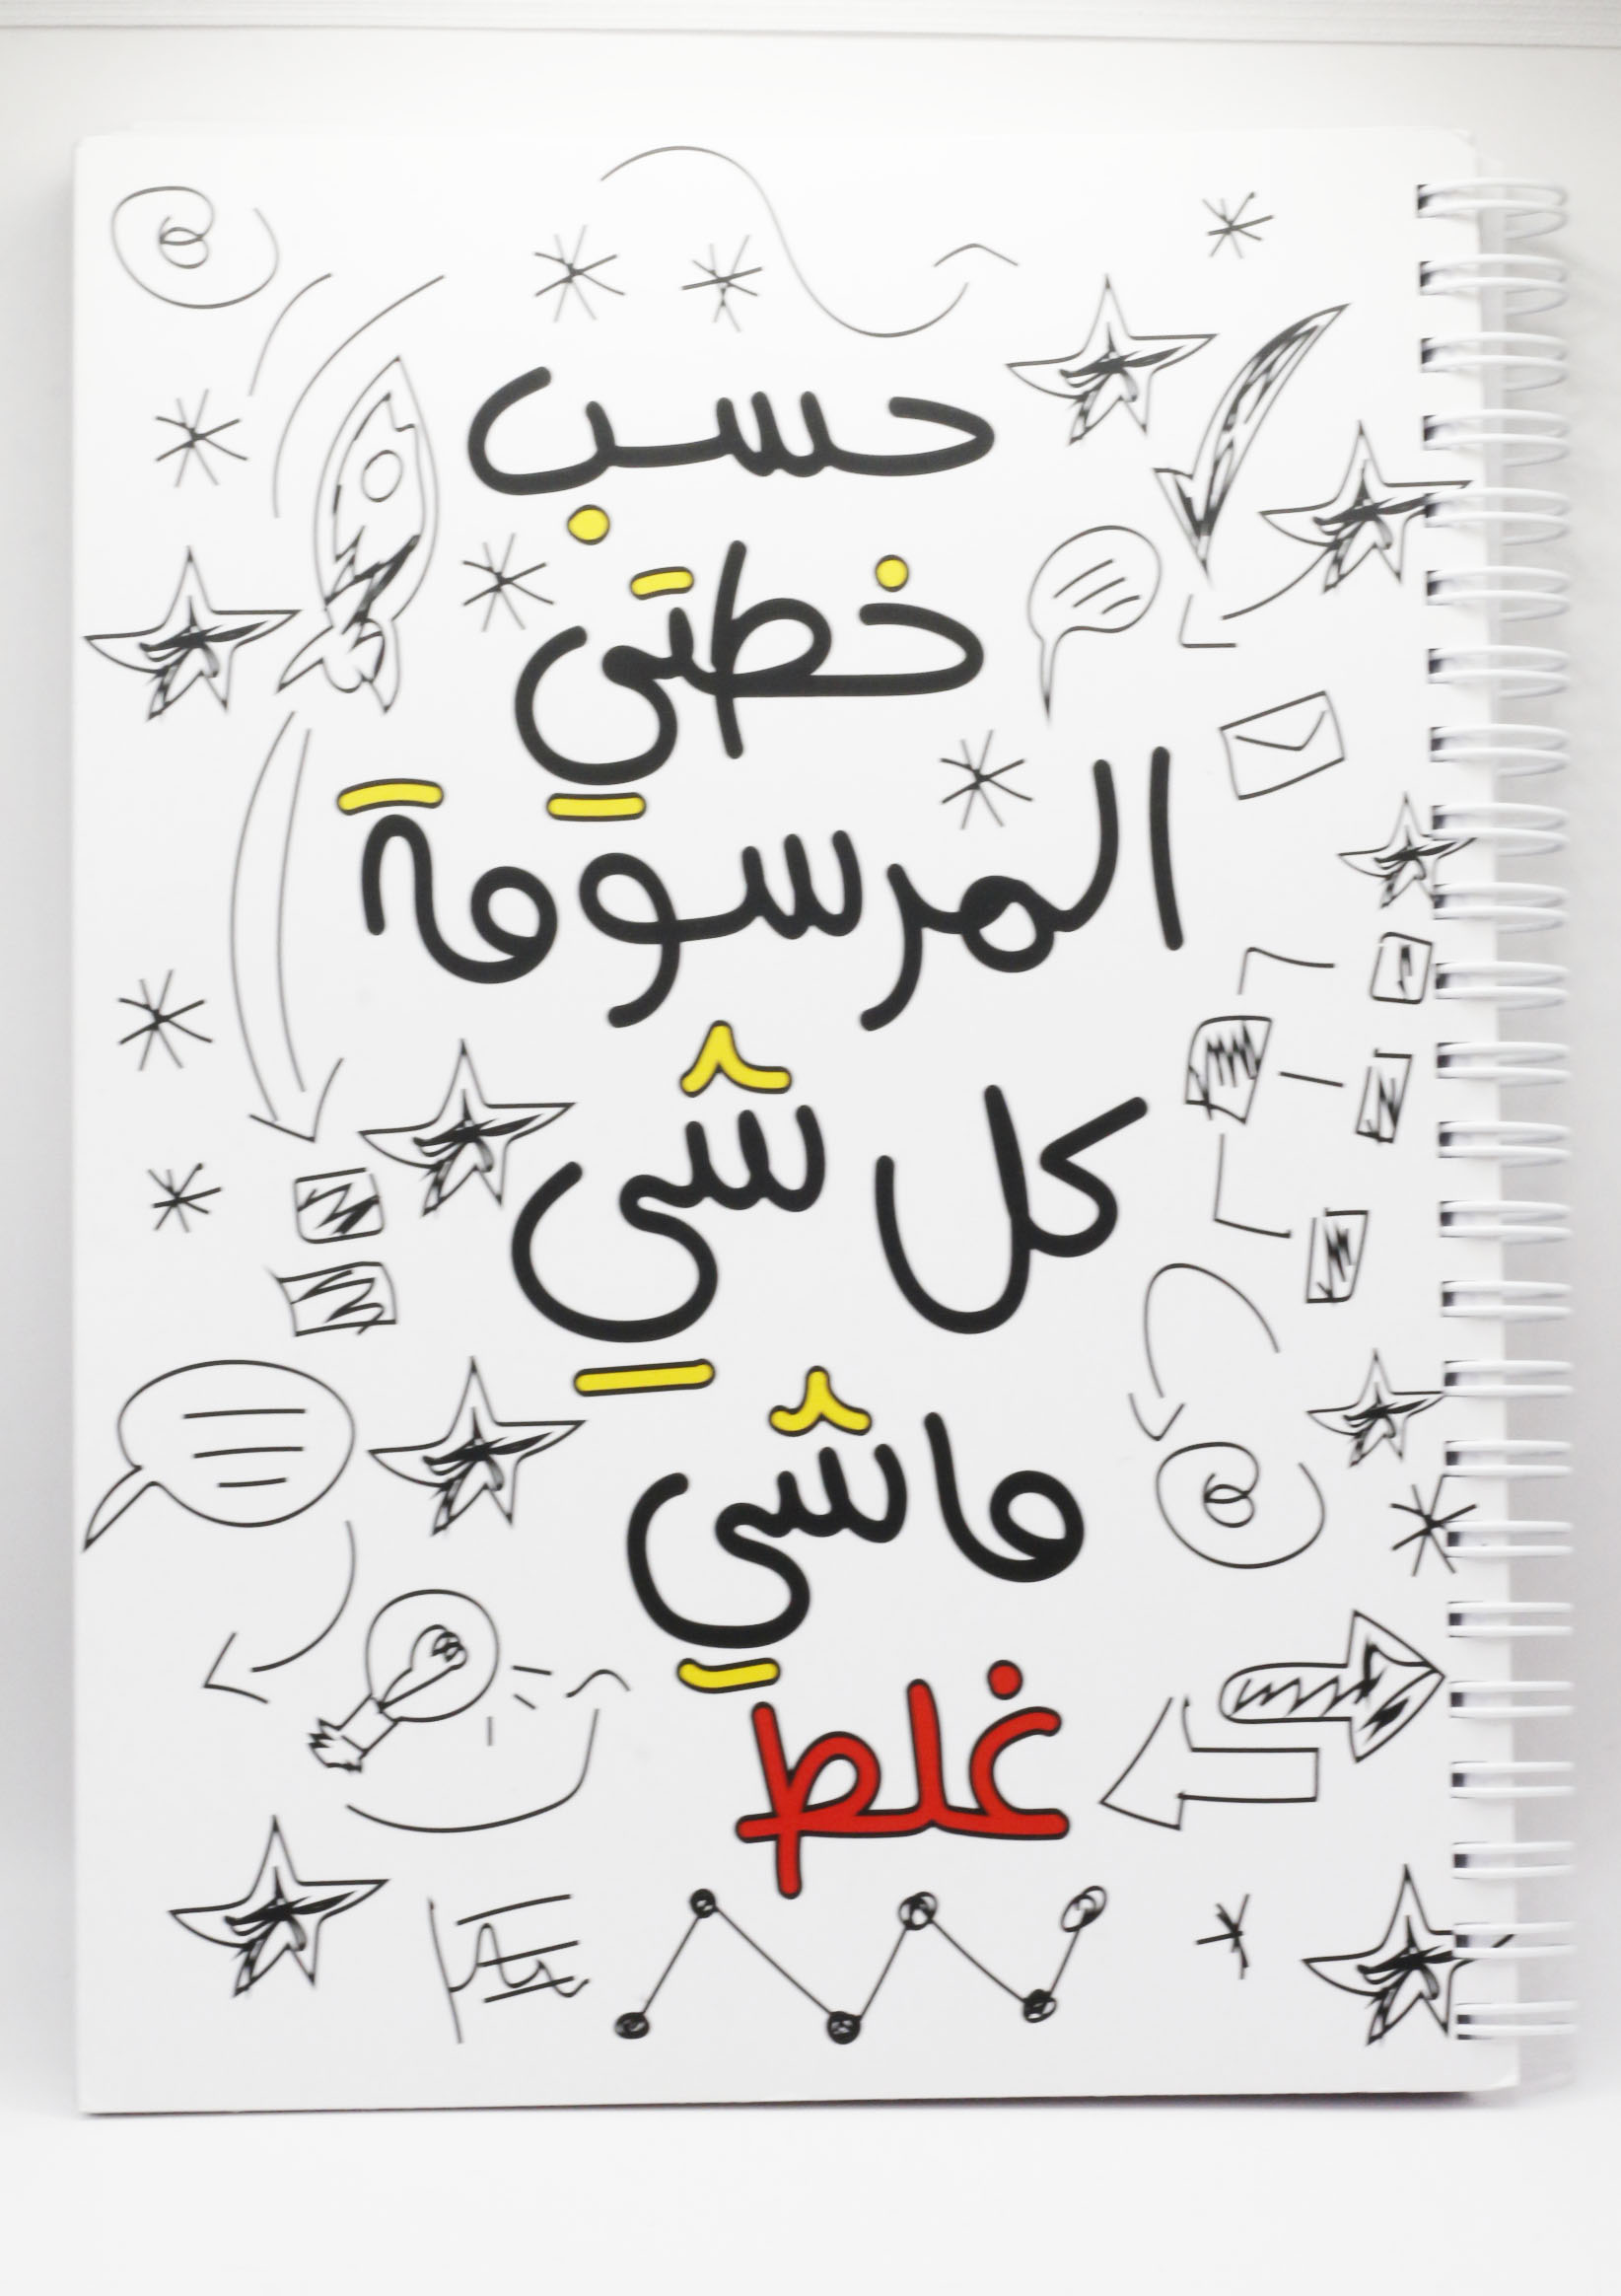 حسب
خطتي
المرسومة
كل شي
ماشي
غلط